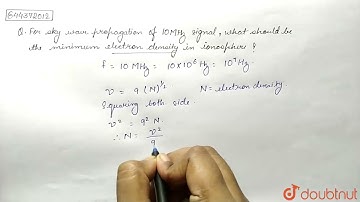 644372012
Q. For sky wave propagation of 10 MHz signal, what should be
the minimum electron density in ionosphere ?
f = 10 MHz = 10×10⁶ Hz = 10⁷ Hz.
ν = 9 (N)^½ N = electron density
Equaring both side
ν² = 9² N
∴ N = ν² / 9
doubtnut